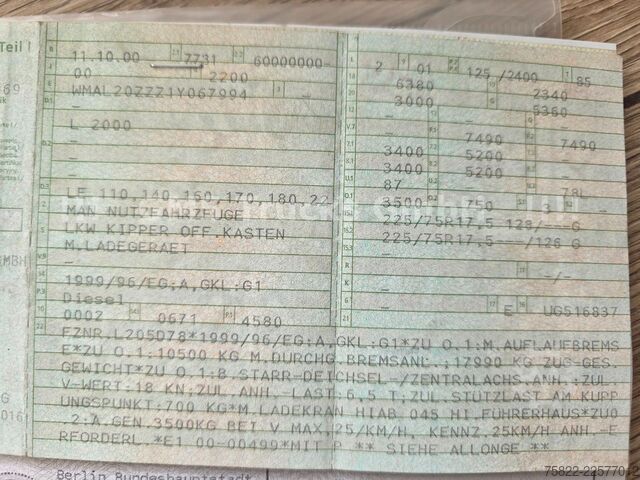 Teil I
11.10.00 7731 60000000-
00 2200
WMAL20ZZZ1Y067994 -
-
L 2000
-
-
-
LE 110,140,160,170,180,22
MAN NUTZFAHRZEUGE
LKW KIPPER OFF.KASTEN
M.LADEGERAET
-
1999/96/EG;A,GKL:G1
Diesel
0002 0671 4580
2 01 125 /2400 85
6380 2340
3000 5360
- - -
- 7490 7490
3400 5200 -
3400 5200 -
87 - 78L
3500 750 -
225/75R17,5 128/---G
225/75R17,5---/126 G
-
- -/-
-
- E UG516837
FZNR.L205D78*1999/96/EG;A,GKL:G1*ZU O.1:M.AUFLAUFBREMS
E*ZU O.1:10500 KG M.DURCHG.BREMSANL.;17990 KG ZUG-GES.
GEWICHT*ZU O.1:B.STARR-DEICHSEL-/ZENTRALACHS.ANH.:ZUL.
V-WERT:18 KN;ZUL.ANH.-LAST:6,5 T;ZUL.STÜTZLAST AM KUPP
UNGSPUNKT:700 KG*M.LADEKRAN HIAB 045 HI.FÜHRERHAUS*ZU0
2:A.GEN.3500KG BEI V MAX.25/KM/H, KENNZ.25KM/H ANH.-E
RFORDERL.*E1 00-00499*MIT P.** SIEHE ALLONGE **
Berlin Bundeshauptstadt
75822-22577012